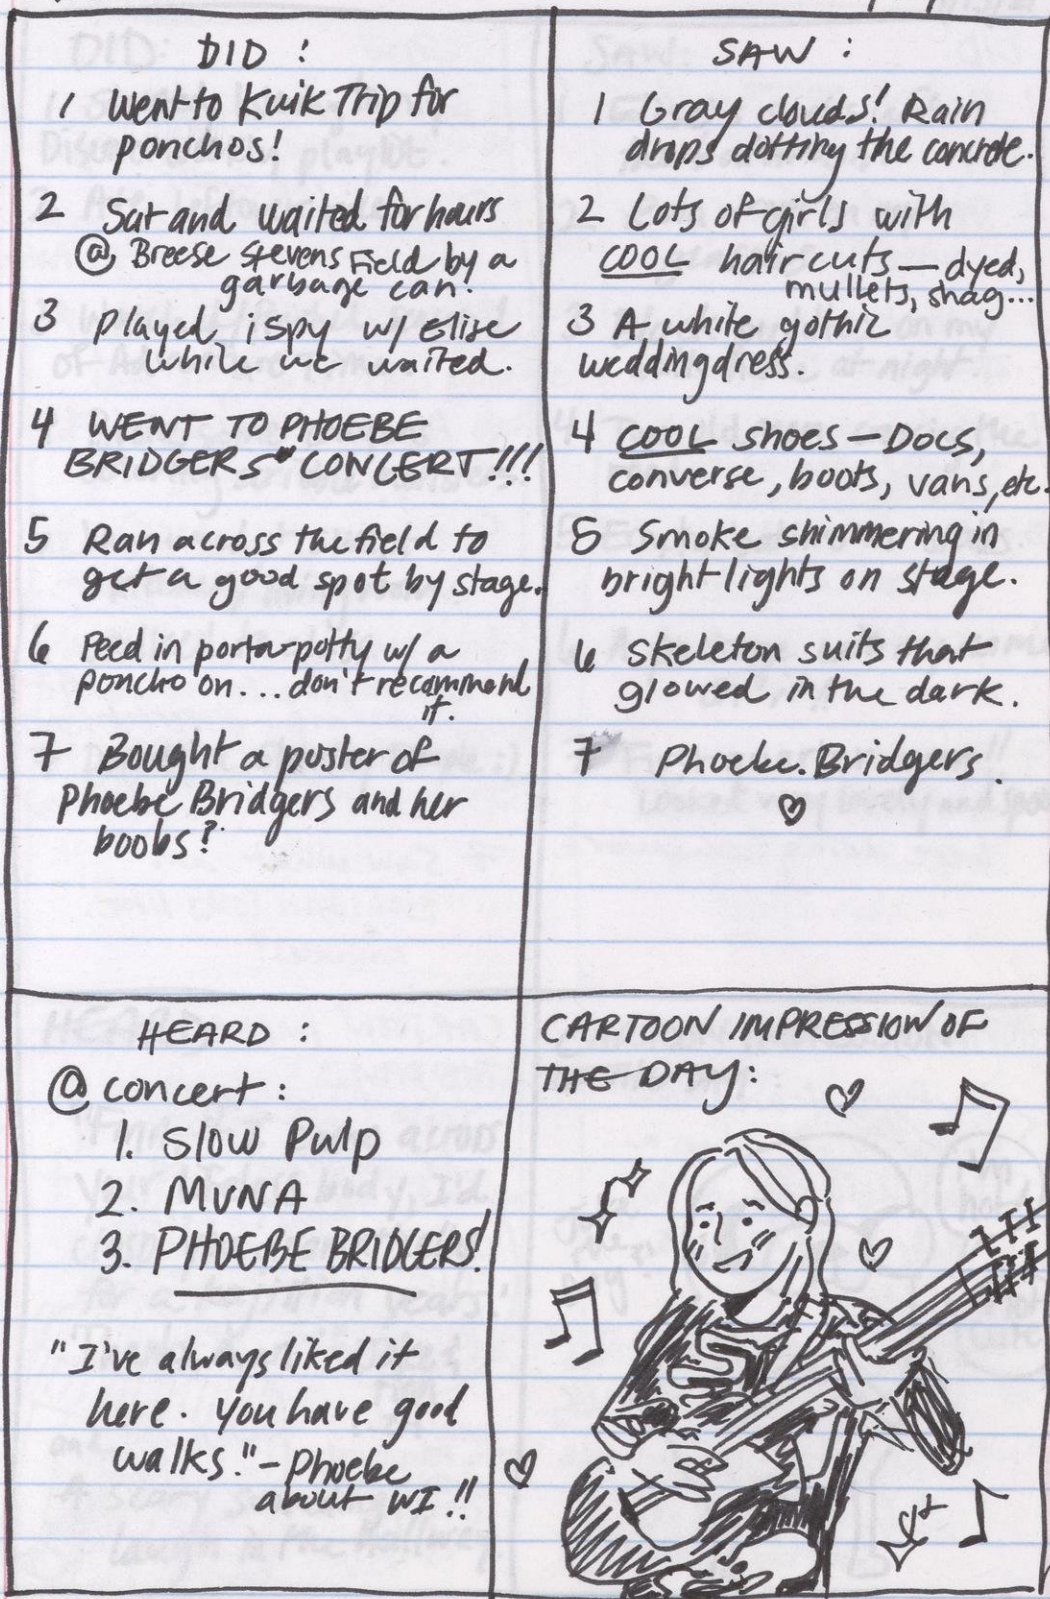 DID :
1 Went to Kwik Trip for
ponchos!
2 Sat and waited for hours
@ Breese Stevens Field by a
garbage can!
3 Played ispy w/ Elise
while we waited.
4 WENT TO PHOEBE
BRIDGERS CONCERT!!!
5 Ran across the field to
get a good spot by stage.
6 Peed in porta-potty w/ a
poncho on... don't recommend
it.
7 Bought a poster of
Phoebe Bridgers and her
boobs?
SAW :
1 Gray clouds! Rain
drops dotting the concrete.
2 Lots of girls with
COOL haircuts — dyed,
mullets, shag...
3 A white gothic
wedding dress.
4 COOL shoes — Docs,
converse, boots, vans, etc.
5 Smoke shimmering in
bright lights on stage.
6 Skeleton suits that
glowed in the dark.
7 Phoebe. Bridgers.
HEARD :
@ concert :
1. Slow Pulp
2. MUNA
3. PHOEBE BRIDGERS!
"I've always liked it
here. You have good
walks." - Phoebe
about WI!!
CARTOON IMPRESSION OF
THE DAY: